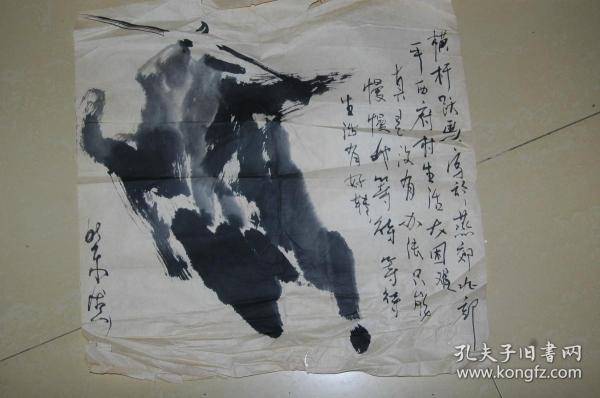 横杆跃马 写于燕郊北部
平西府村生活大困难
真是没有办法只能
慢慢的等待等待
生活有好转
孔夫子旧書网
www.kongfz.com